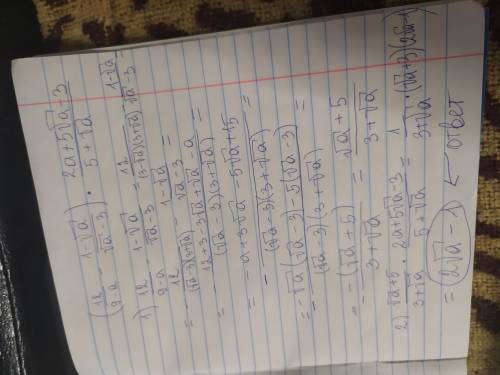 (12/(9-a) - (1-√a)/(√a-3)) · (2a+5√a-3)/(5+√a)
1) 12/(9-a) - (1-√a)/(√a-3) = 12/((3-√a)(3+√a)) - (1-√a)/(√a-3) =
= - 12/((√a-3)(3+√a)) - (1-√a)/(√a-3) =
= - (12+3-3√a+√a-a)/((√a-3)(3+√a)) =
= - (-a+3√a-5√a+15)/((√a-3)(3+√a)) =
= - (-√a(√a-3)-5(√a-3))/((√a-3)(3+√a)) =
= - (-(√a+5))/(3+√a) = (√a+5)/(3+√a)
2) (√a+5)/(3+√a) · (2a+5√a-3)/(5+√a) = 1/(3+√a) · (√a+3)(2√a-1)
= (2√a-1) ← ответ